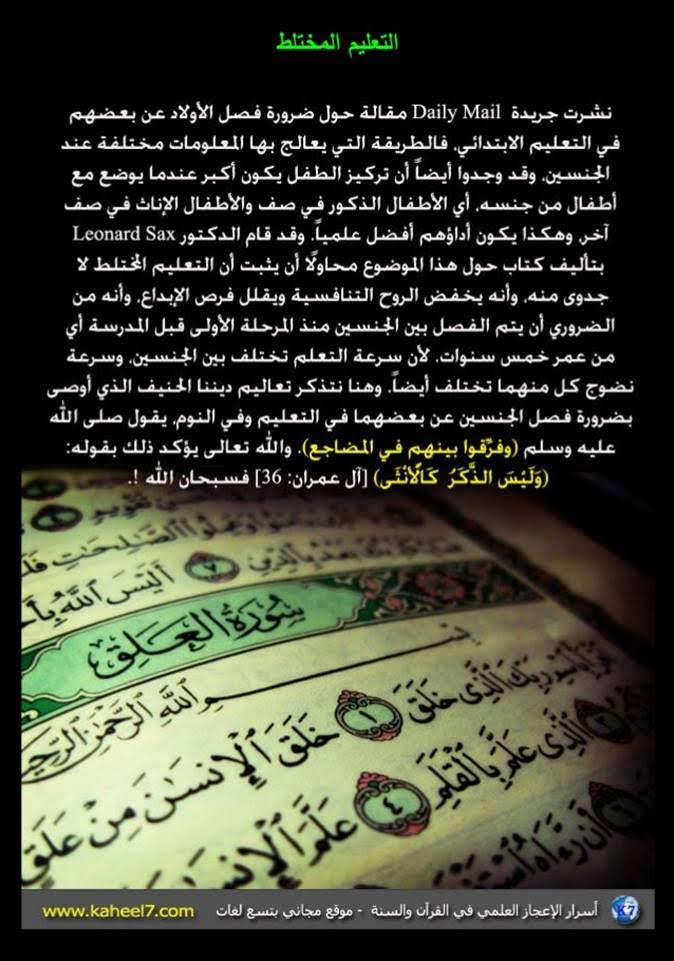 التعليم المختلط
نشرت جريدة Daily Mail مقالة حول ضرورة فصل الأولاد عن بعضهم
في التعليم الابتدائي، فالطريقة التي يعالج بها المعلومات مختلفة عند
الجنسين، وقد وجدوا أيضاً أن تركيز الطفل يكون أكبر عندما يوضع مع
أطفال من جنسه، أي الأطفال الذكور في صف والأطفال الإناث في صف
آخر، وهكذا يكون أداؤهم أفضل علمياً. وقد قام الدكتور Leonard Sax
بتأليف كتاب حول هذا الموضوع محاولًا أن يثبت أن التعليم المختلط لا
جدوى منه، وأنه يخفض الروح التنافسية ويقلل فرص الإبداع، وأنه من
الضروري أن يتم الفصل بين الجنسين منذ المرحلة الأولى قبل المدرسة أي
من عمر خمس سنوات، لأن سرعة التعلم تختلف بين الجنسين، وسرعة
نضوج كل منهما تختلف أيضاً. وهنا نتذكر تعاليم ديننا الحنيف الذي أوصى
بضرورة فصل الجنسين عن بعضهما في التعليم وفي النوم، يقول صلى الله
عليه وسلم (وفرّقوا بينهم في المضاجع). والله تعالى يؤكد ذلك بقوله:
(وَلَيْسَ الذَّكَرُ كَالْأُنْثَى) [آل عمران: 36] فسبحان الله !.
أَلَيْسَ اللَّهُ
سورة العلق
اللَّهِ الرَّحْمَٰنِ الرَّحِيمِ
رَبِّكَ الَّذِي خَلَقَ ١ خَلَقَ الْإِنسَانَ مِنْ عَلَقٍ
الَّذِي عَلَّمَ بِالْقَلَمِ ٤ عَلَّمَ الْإِنسَانَ
أَن رَّءَاهُ
أسرار الإعجاز العلمي في القرآن والسنة - موقع مجاني بتسع لغات www.kaheel7.com
K7